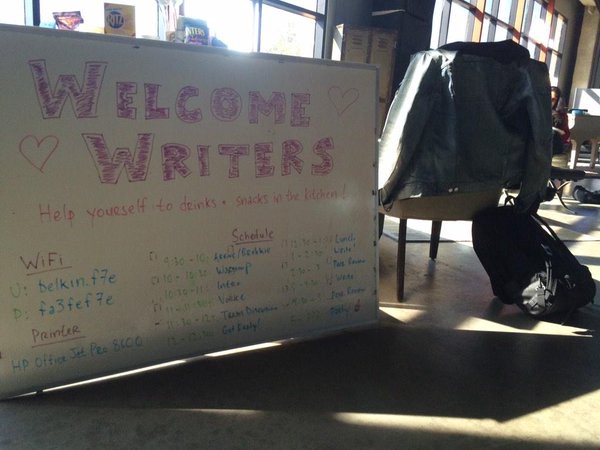 RITZ
WELCOME
WRITERS
Help yourself to drinks + snacks in the kitchen!
WiFi
U: belkin.f7e
P: fa3fef7e
Printer
HP Office Jet Pro 8600
Schedule
9:30 - 10:
10 - 10:30 Warmup
10:30 - 11: Intro
Voice
11:30 - 12: Team Discussion
Get Ready!
Lunch
Write!
Peer Review
Write
Peer Review
Party!